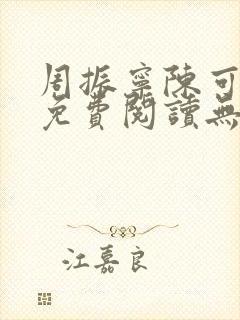 周振寧陳可
免費閱讀無
江嘉良